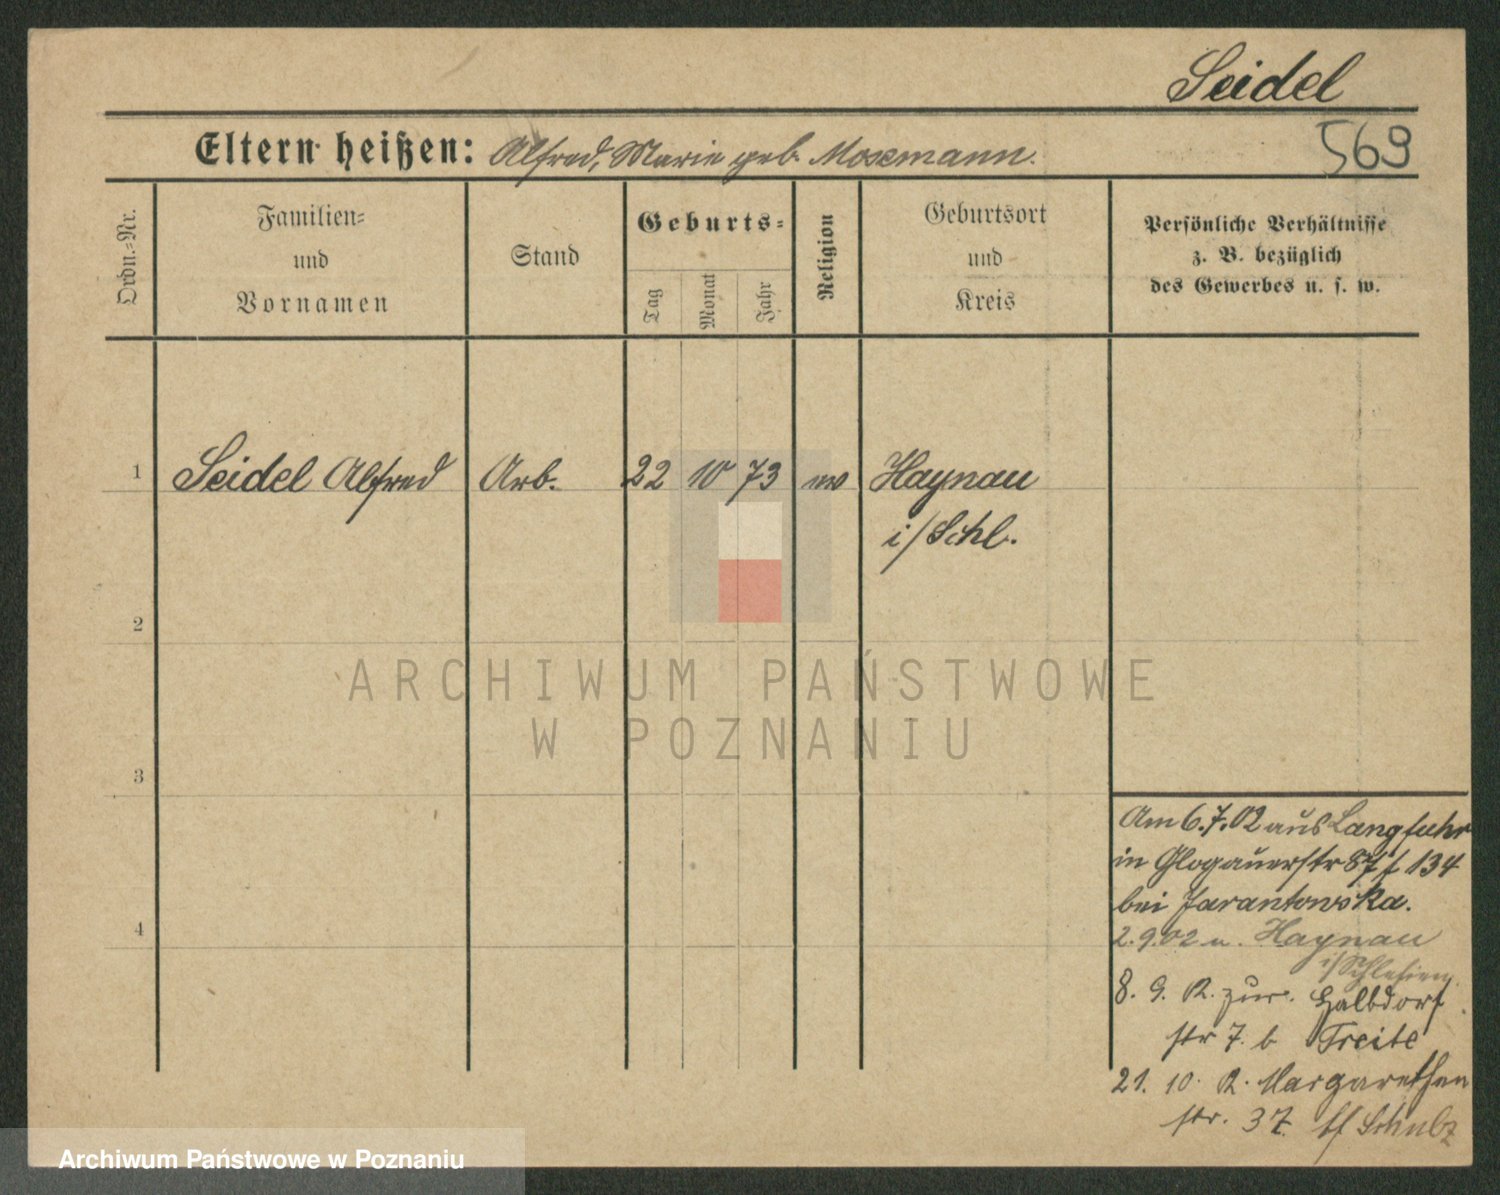 Seidel
Eltern heißen: Alfred, Marie geb. Mosemann.
569
Ordn.=Nr.
Familien=
und
Vornamen
Stand
Geburts=
Tag
Monat
Jahr
Religion
Geburtsort
und
Kreis
Persönliche Verhältnisse
z. B. bezüglich
des Gewerbes u. s. w.
1 Seidel Alfred Arb. 22 10 73 ev Haynau
i/Schl.
2
3
4
Am 6.7.02 aus Langfuhr
in Glogauerstr 87 134
bei Jarantowska.
2.9.02 n. Haynau
i/Schlesien
8. 9. R. zur. Halbdorf
str 7. b Treite
21. 10. R. Margarethen
str. 37. Schulz
ARCHIWUM PAŃSTWOWE
W POZNANIU
Archiwum Państwowe w Poznaniu